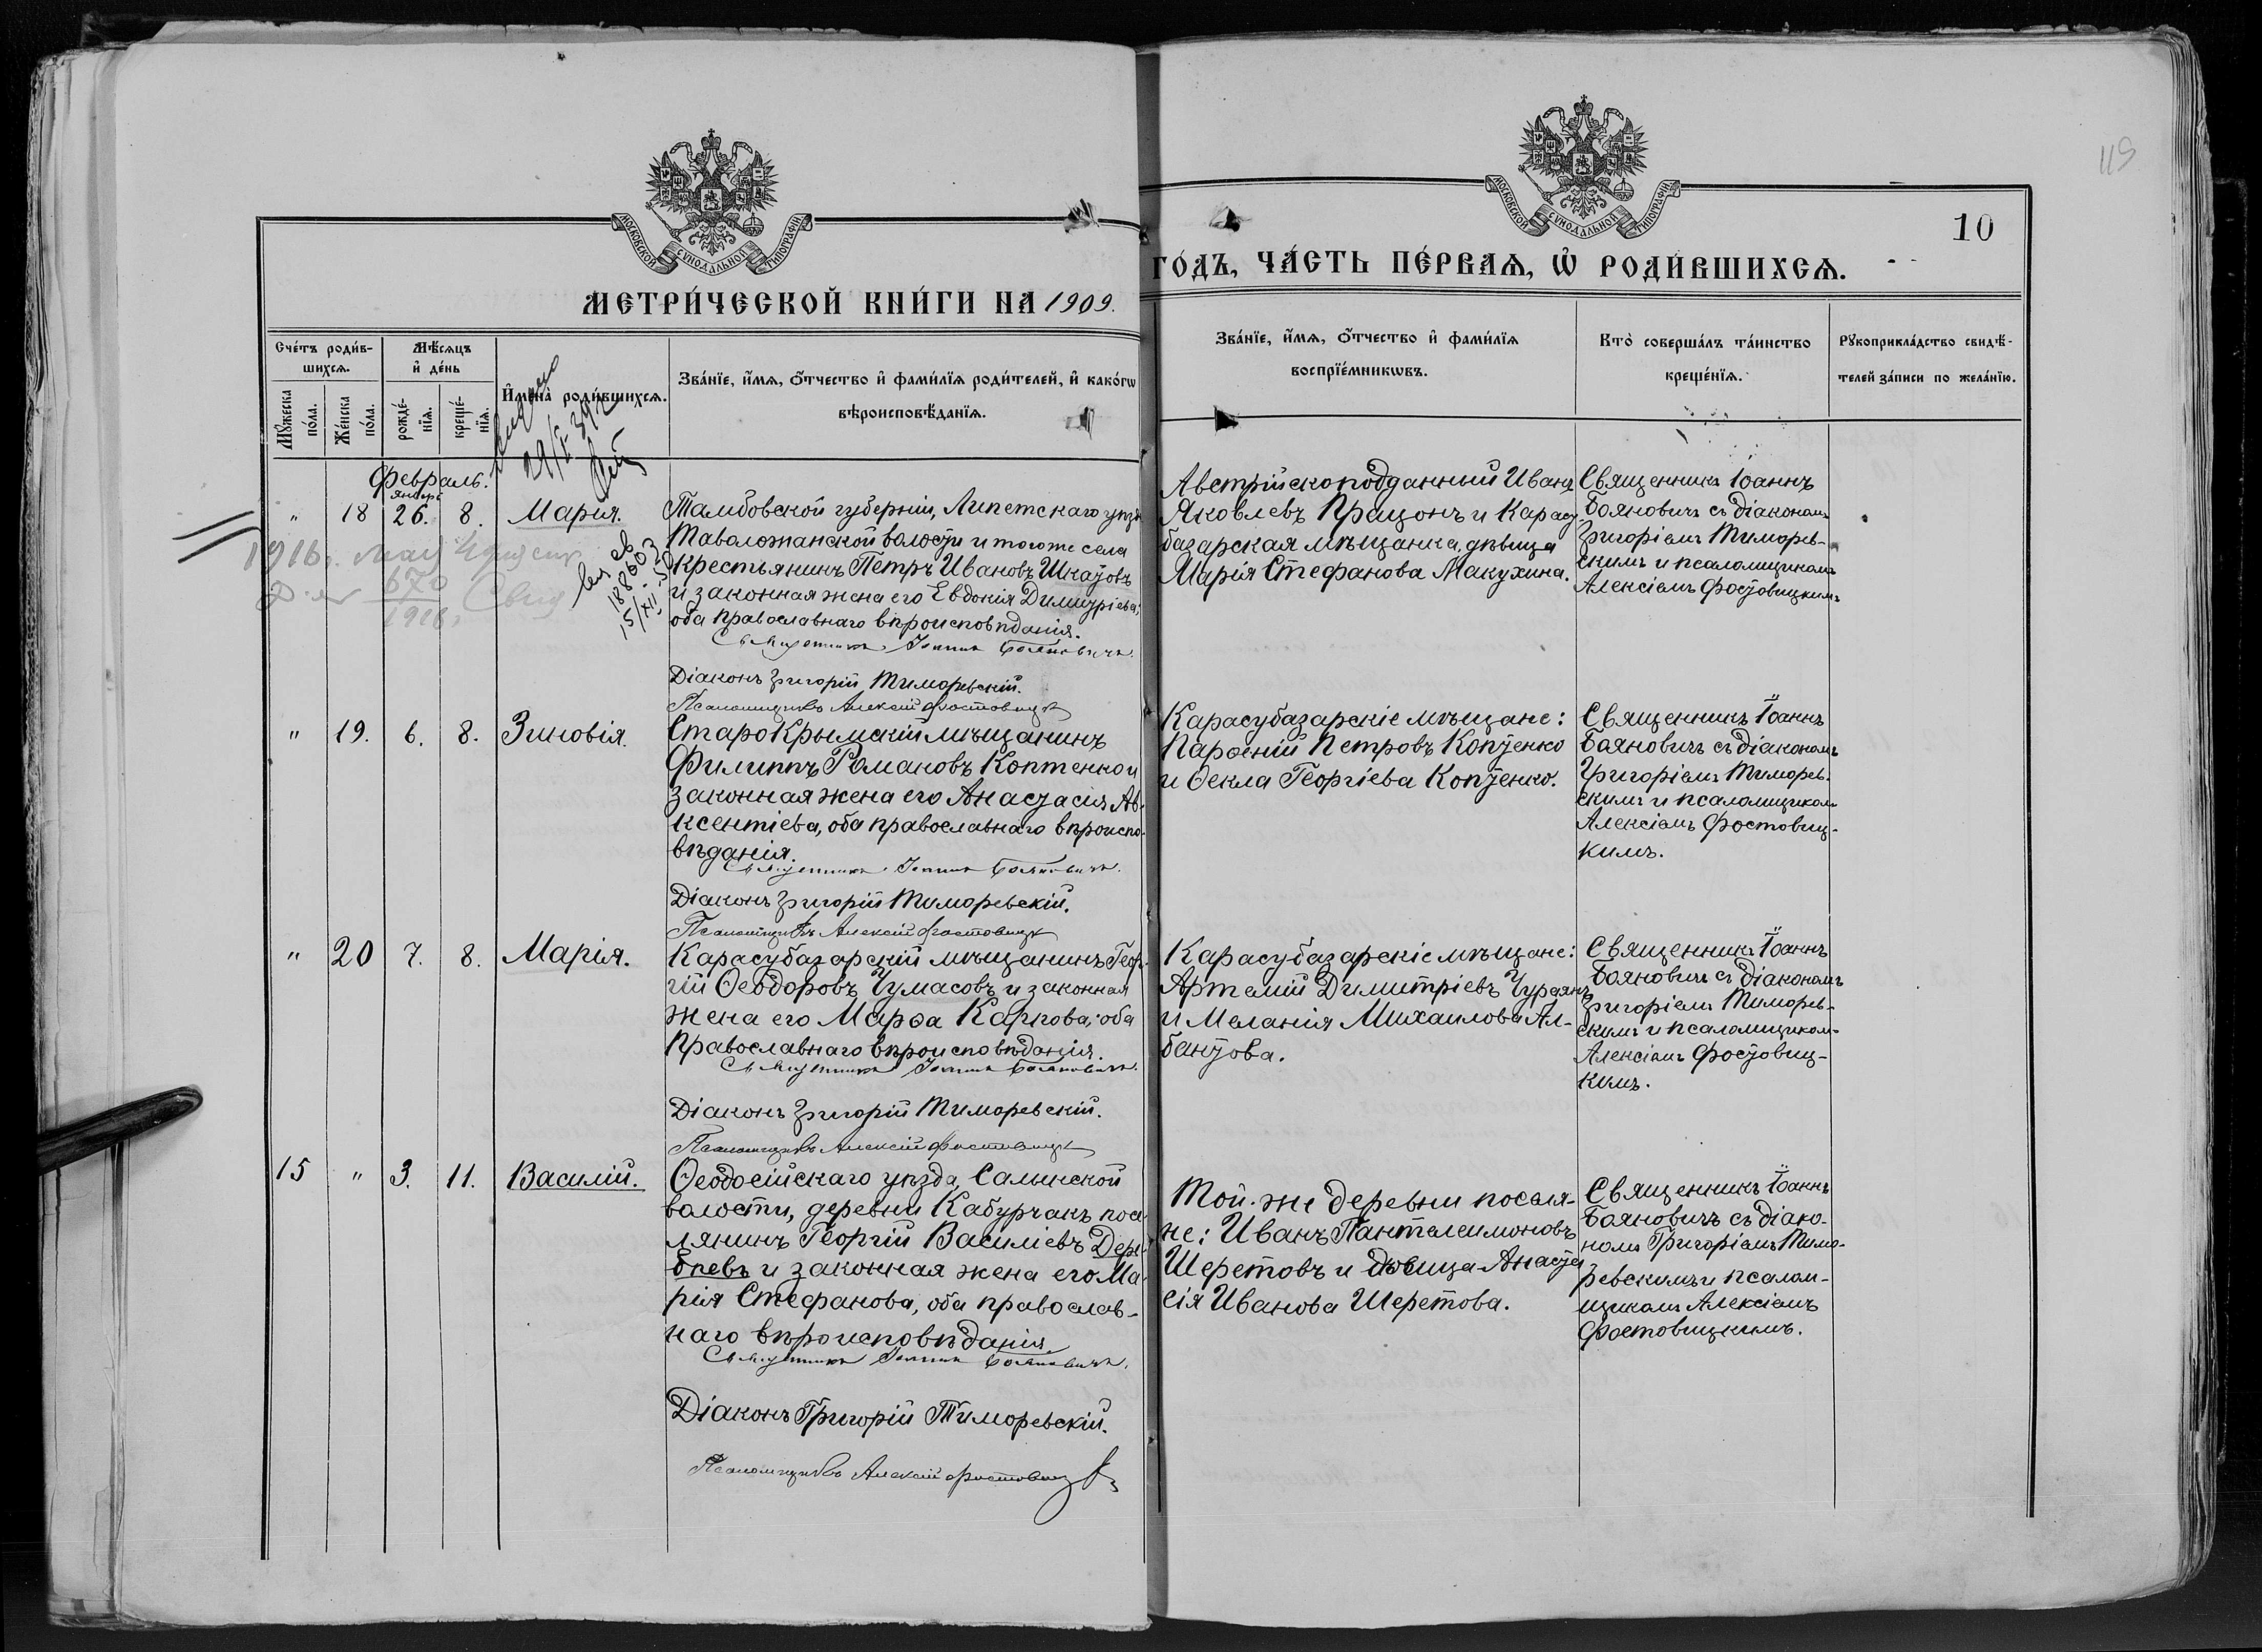 119
10
МОСКОВСКОЙ СѴНОДАЛЬНОЙ ТИПОГРАФІИ
МОСКОВСКОЙ СѴНОДАЛЬНОЙ ТИПОГРАФІИ
МЕТРИ́ЧЕСКОЙ КНИ́ГИ НА 1909.
ГО́ДЪ, ЧА́СТЬ ПЕ́РВАѦ, Ѡ҆ РОДИ́ВШИХСѦ.
Сче́тъ роди́в-
шихсѧ.
Мꙋ́жеска по́ла.
Же́нска по́ла.
Мѣ́сѧцъ
и҆ де́нь
рожде́-
нїѧ.
креще́-
нїѧ.
И҆мена̀ роди́вшихсѧ.
Зва́нїе, и҆́мѧ, ѻ҆́тчество и҆ фами́лїѧ роди́телей, и҆ како́гѡ
вѣроисповѣ́данїѧ.
Зва́нїе, и҆́мѧ, ѻ҆́тчество и҆ фами́лїѧ
воспрїе́мникѡвъ.
Кто̀ соверша́лъ та́инство
креще́нїѧ.
Рꙋкоприкла́дство свидѣ́-
телей за́писи по жела́нїю.
Февраль.
январь
" 18 26. 8. Марія.
Тамбовской губерніи, Липетскаго уѣзда
Таволожанской волости и тогоже села
крестьянинъ Петръ Ивановъ Шкатовъ
и законная жена его Евдокія Димитріева;
оба православнаго вѣроисповѣданія.
Священникъ Іоаннъ Бояновичъ.
Діаконъ Григорій Тиморевскій.
Псаломщикъ Алексій Фостовицкій
Австрійскоподданный Иванъ
Яковлевъ Працонъ и Карасу-
базарская мѣщанка, дѣвица
Марія Стефанова Макухина.
Священникъ Іоаннъ
Бояновичъ съ діакономъ
Григоріемъ Тиморев-
скимъ и псаломщикомъ
Алексіемъ Фостовицкимъ
1916. мая
670
1916. Свид
188603
15/XII
29/I 39 г
" 19. 6. 8. Зиновія.
СтароКрымскій мѣщанинъ
Филиппъ Романовъ Коптенко и
законная жена его Анастасія Ав-
ксентіева, оба православнаго вѣроиспо-
вѣданія.
Священникъ Іоаннъ Бояновичъ.
Діаконъ Григорій Тиморевскій.
Псаломщикъ Алексій Фостовицкій
Карасубазарскіе мѣщане:
Парѳеній Петровъ Коптенко
и Ѳекла Георгіева Коптенко.
Священникъ Іоаннъ
Бояновичъ съ діакономъ
Григоріемъ Тиморев-
скимъ и псаломщикомъ
Алексіемъ Фостовиц-
кимъ.
" 20 7. 8. Марія.
Карасубазарскій мѣщанинъ Геор-
гій Ѳеодоровъ Чумасовъ и законная
жена его Марѳа Карпова; оба
православнаго вѣроисповѣданія.
Священникъ Іоаннъ Бояновичъ.
Діаконъ Григорій Тиморевскій.
Псаломщикъ Алексій Фостовицкій
Карасубазарскіе мѣщане:
Артемій Димитріевъ Чураянъ
и Меланія Михаилова Ал-
бантова.
Священникъ Іоаннъ
Бояновичъ съ діакономъ
Григоріемъ Тиморев-
скимъ и псаломщикомъ
Алексіемъ Фостовиц-
кимъ.
15 " 3. 11. Василій.
Ѳеодосійскаго уѣзда, Салынской
волости, деревни Кабурчакъ посе-
лянинъ Георгій Василіевъ Дере-
бѣевъ и законная жена его Ма-
рія Стефанова, оба православ-
наго вѣроисповѣданія.
Священникъ Іоаннъ Бояновичъ.
Діаконъ Григорій Тиморевскій.
Псаломщикъ Алексій Фостовицкій
Той-же деревни поселя-
не: Иванъ Пантелеимоновъ
Шеретовъ и дѣвица Анаста-
сія Иванова Шеретова.
Священникъ Іоаннъ
Бояновичъ съ діако-
номъ Григоріемъ Тимо-
ревскимъ и псалом-
щикомъ Алексіемъ
Фостовицкимъ.